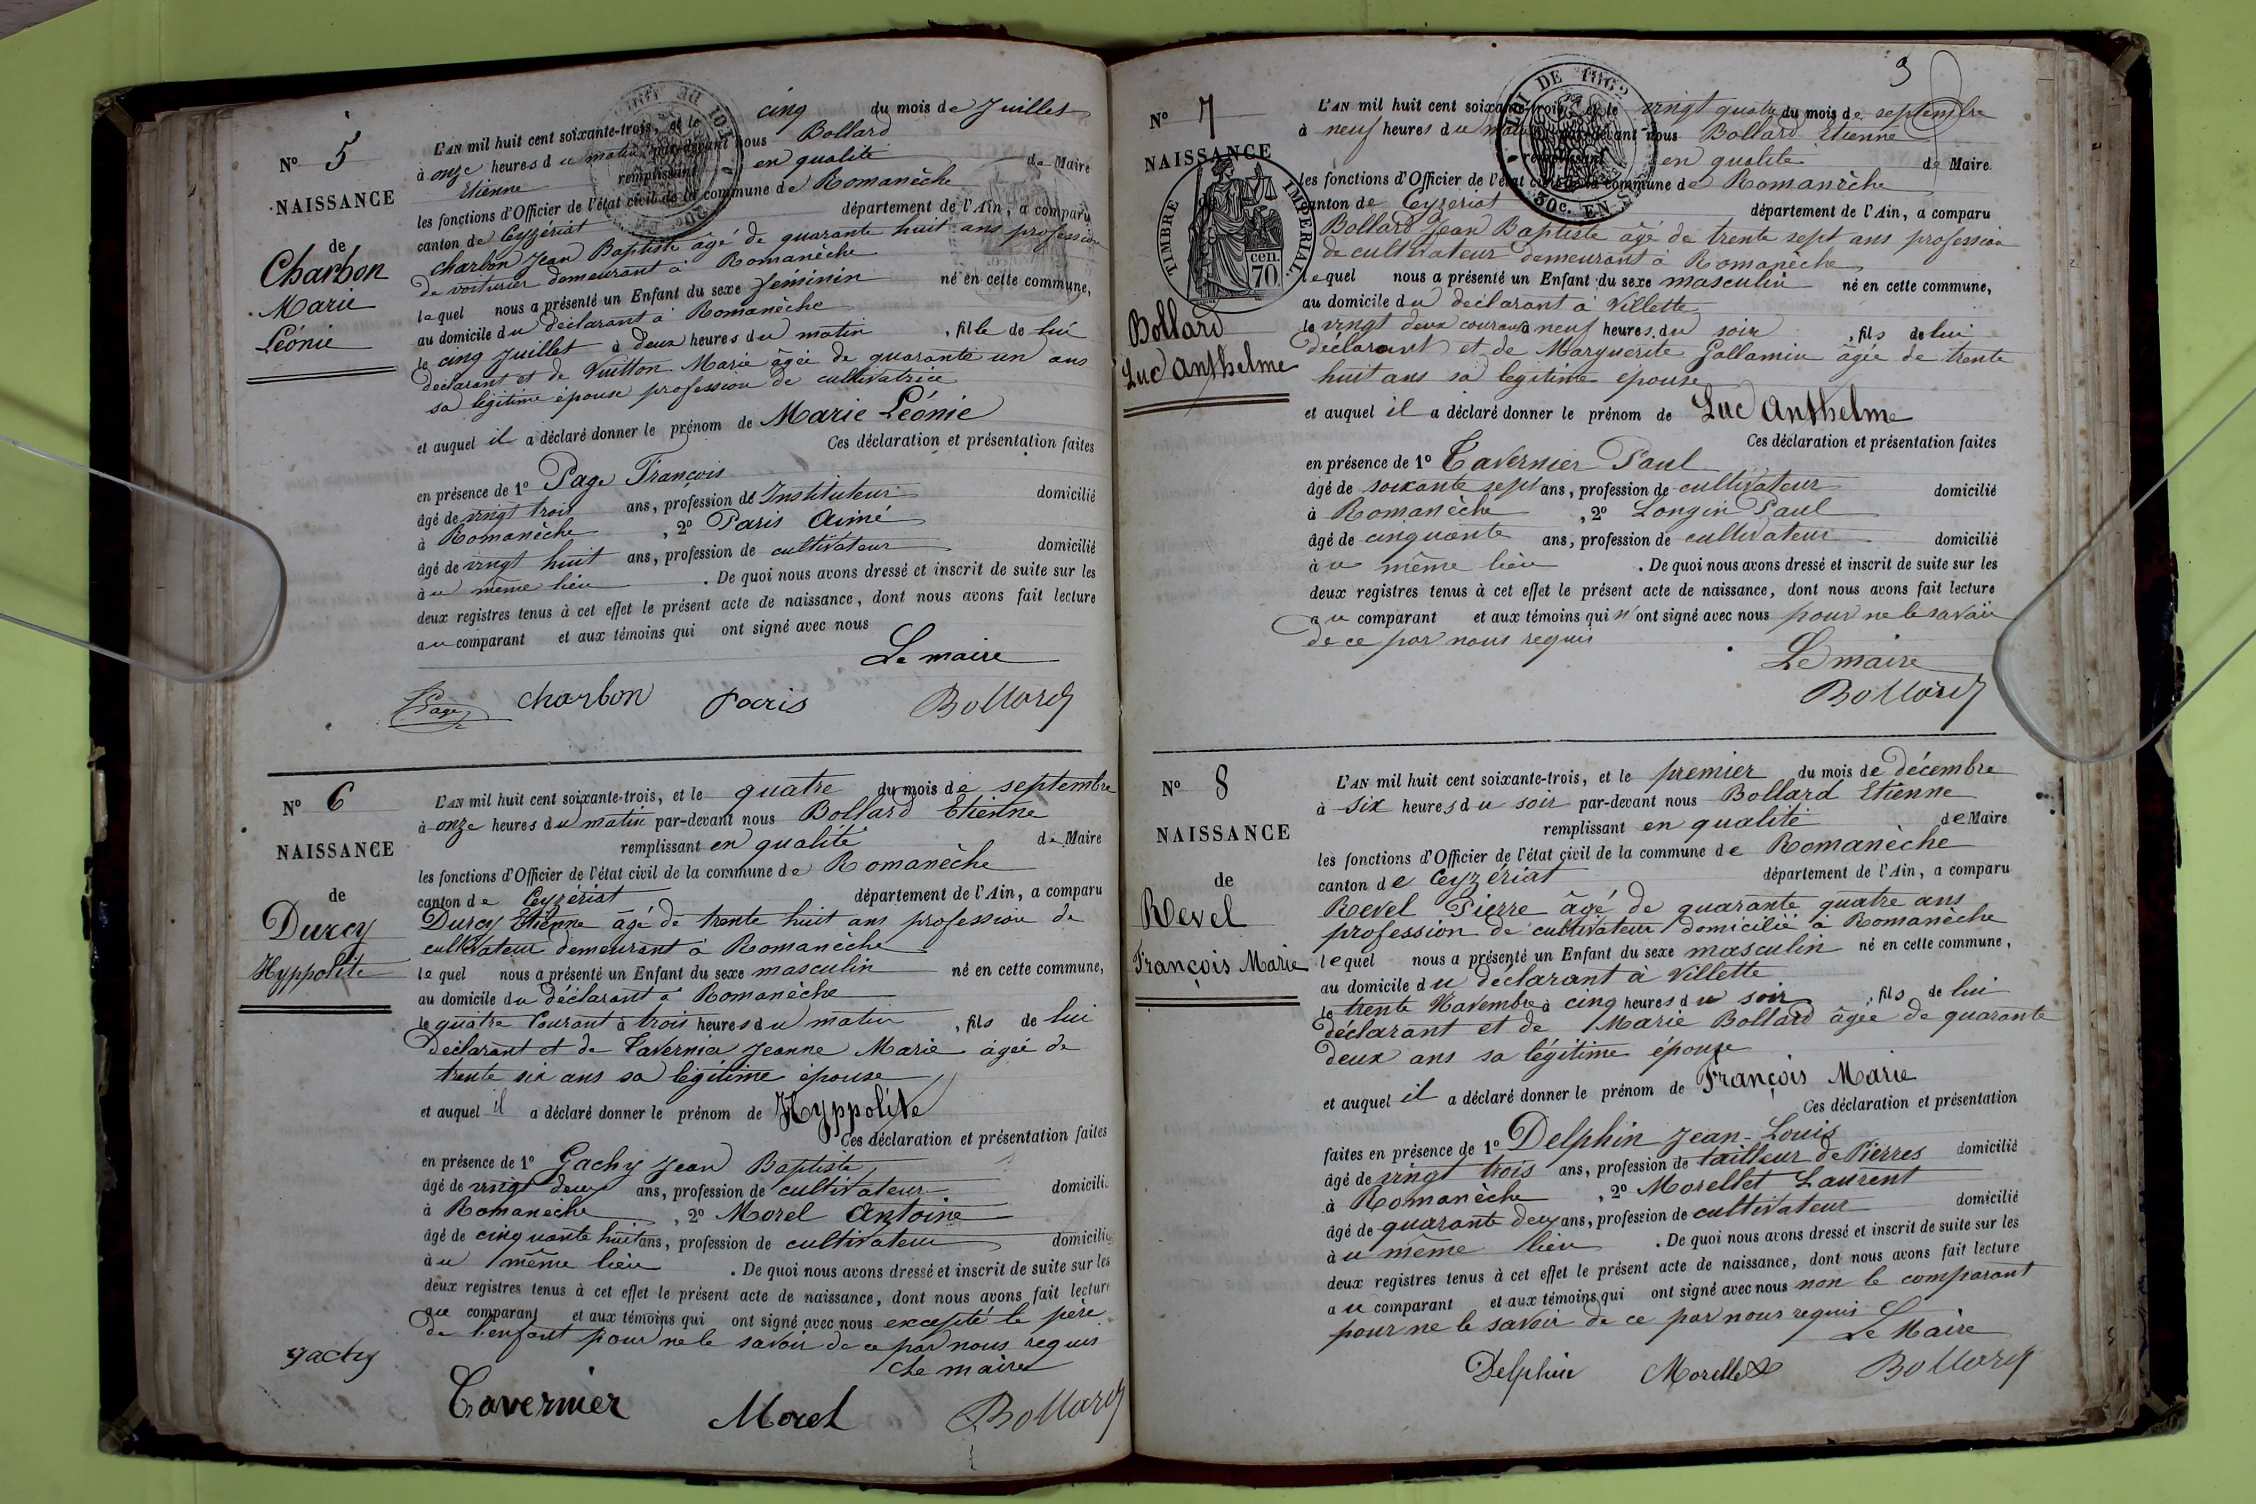 N° 5
NAISSANCE
de
Charbon
Marie
Léonie
L'AN mil huit cent soixante-trois, et le cinq du mois de Juillet
à onze heures du matin par-devant nous Bollard
Etienne remplissant en qualité de Maire
les fonctions d'Officier de l'état civil de la commune de Romanèche
canton de Ceyzériat département de l'Ain, a comparu
Charbon Jean Baptiste âgé de quarante huit ans profession
de voiturier demeurant à Romanèche
lequel nous a présenté un Enfant du sexe féminin né en cette commune,
au domicile du déclarant à Romanèche
le cinq Juillet à deux heures du matin , fille de lui
déclarant et de Vuitton Marie âgée de quarante un ans
sa légitime épouse profession de cultivatrice
et auquel il a déclaré donner le prénom de Marie Léonie
Ces déclaration et présentation faites
en présence de 1° Page François
âgé de vingt trois ans, profession de Instituteur domicilié
à Romanèche , 2° Paris Aimé
âgé de vingt huit ans, profession de cultivateur domicilié
au même lieu . De quoi nous avons dressé et inscrit de suite sur les
deux registres tenus à cet effet le présent acte de naissance, dont nous avons fait lecture
au comparant et aux témoins qui ont signé avec nous
Le maire
Page Charbon Paris Bollard
N° 6
NAISSANCE
de
Durcy
Hyppolite
L'AN mil huit cent soixante-trois, et le quatre du mois de septembre
à onze heures du matin par-devant nous Bollard Etienne
remplissant en qualité de Maire
les fonctions d'Officier de l'état civil de la commune de Romanèche
canton de Ceyzériat département de l'Ain, a comparu
Durcy Etienne âgé de trente huit ans profession de
cultivateur demeurant à Romanèche
lequel nous a présenté un Enfant du sexe masculin né en cette commune,
au domicile du déclarant à Romanèche
le quatre Courant à trois heures du matin , fils de lui
Déclarant et de Tavernier Jeanne Marie âgée de
trente six ans sa légitime épouse
et auquel il a déclaré donner le prénom de Hyppolite
Ces déclaration et présentation faites
en présence de 1° Gachy Jean Baptiste
âgé de vingt deux ans, profession de cultivateur domicilié
à Romanèche , 2° Morel Antoine
âgé de cinquante huit ans, profession de cultivateur domicilié
au même lieu . De quoi nous avons dressé et inscrit de suite sur les
deux registres tenus à cet effet le présent acte de naissance, dont nous avons fait lecture
au comparant et aux témoins qui ont signé avec nous excepté le père
de l'enfant pour ne le savoir de ce par nous requis
Le maire
gachy Tavernier Morel Bollard
9
N° 7
NAISSANCE
TIMBRE IMPERIAL.
cen.
70
Bollard
Luc Anthelme
L'AN mil huit cent soixante-trois, et le vingt quatre du mois de septembre
à neuf heures du matin par-devant nous Bollard Etienne
remplissant en qualité de Maire
les fonctions d'Officier de l'état civil de la commune de Romanèche
canton de Ceyzériat département de l'Ain, a comparu
Bollard Jean Baptiste âgé de trente sept ans profession
de cultivateur demeurant à Romanèche
lequel nous a présenté un Enfant du sexe masculin né en cette commune,
au domicile du déclarant à Villette
le vingt deux courant à neuf heures du soir , fils de lui
déclarant et de Marguerite Gallamin âgée de trente
huit ans sa légitime épouse
et auquel il a déclaré donner le prénom de Luc Anthelme
Ces déclaration et présentation faites
en présence de 1° Tavernier Paul
âgé de soixante sept ans, profession de cultivateur domicilié
à Romanèche , 2° Longin Paul
âgé de cinquante ans, profession de cultivateur domicilié
au même lieu . De quoi nous avons dressé et inscrit de suite sur les
deux registres tenus à cet effet le présent acte de naissance, dont nous avons fait lecture
au comparant et aux témoins qui n'ont signé avec nous pour ne le savoir
de ce par nous requis
Le maire
Bollard
N° 8
NAISSANCE
de
Revel
François Marie
L'AN mil huit cent soixante-trois, et le premier du mois de décembre
à six heures du soir par-devant nous Bollard Etienne
remplissant en qualité de Maire
les fonctions d'Officier de l'état civil de la commune de Romanèche
canton de Ceyzériat département de l'Ain, a comparu
Revel Pierre âgé de quarante quatre ans
profession de cultivateur domicilié à Romanèche
lequel nous a présenté un Enfant du sexe masculin né en cette commune,
au domicile du déclarant à Villette
le trente Novembre à cinq heures du soir , fils de lui
déclarant et de Marie Bollard âgée de quarante
deux ans sa légitime épouse
et auquel il a déclaré donner le prénom de François Marie
Ces déclaration et présentation
faites en présence de 1° Delphin Jean-Louis
âgé de vingt trois ans, profession de tailleur de Pierres domicilié
à Romanèche , 2° Morellet Laurent
âgé de quarante deux ans, profession de cultivateur domicilié
au même lieu . De quoi nous avons dressé et inscrit de suite sur les
deux registres tenus à cet effet le présent acte de naissance, dont nous avons fait lecture
au comparant et aux témoins qui ont signé avec nous non le comparant
pour ne le savoir de ce par nous requis
Le Maire
Delphin Morellet Bollard